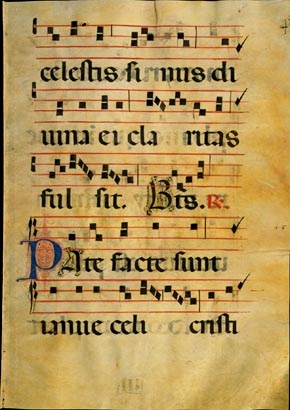 celestis si mus di
uina ei cla ritas
ful sit. Bt̃s. R.
Pate facte sunt
ianue celi cristi